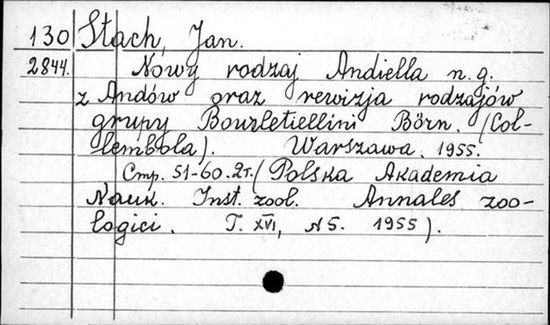 130 Stach, Jan.
2844. Nowy rodzaj Andiella n.g.
z Andów oraz rewizja rodzajów
grupy Bourletiellini Börn. (Col-
lembola). Warszawa. 1955.
Стр. 51-60. 2т. (Polska Akademia
Nauk. Inst. zool. Annales zoo-
logici. T. XVI, N 5. 1955).